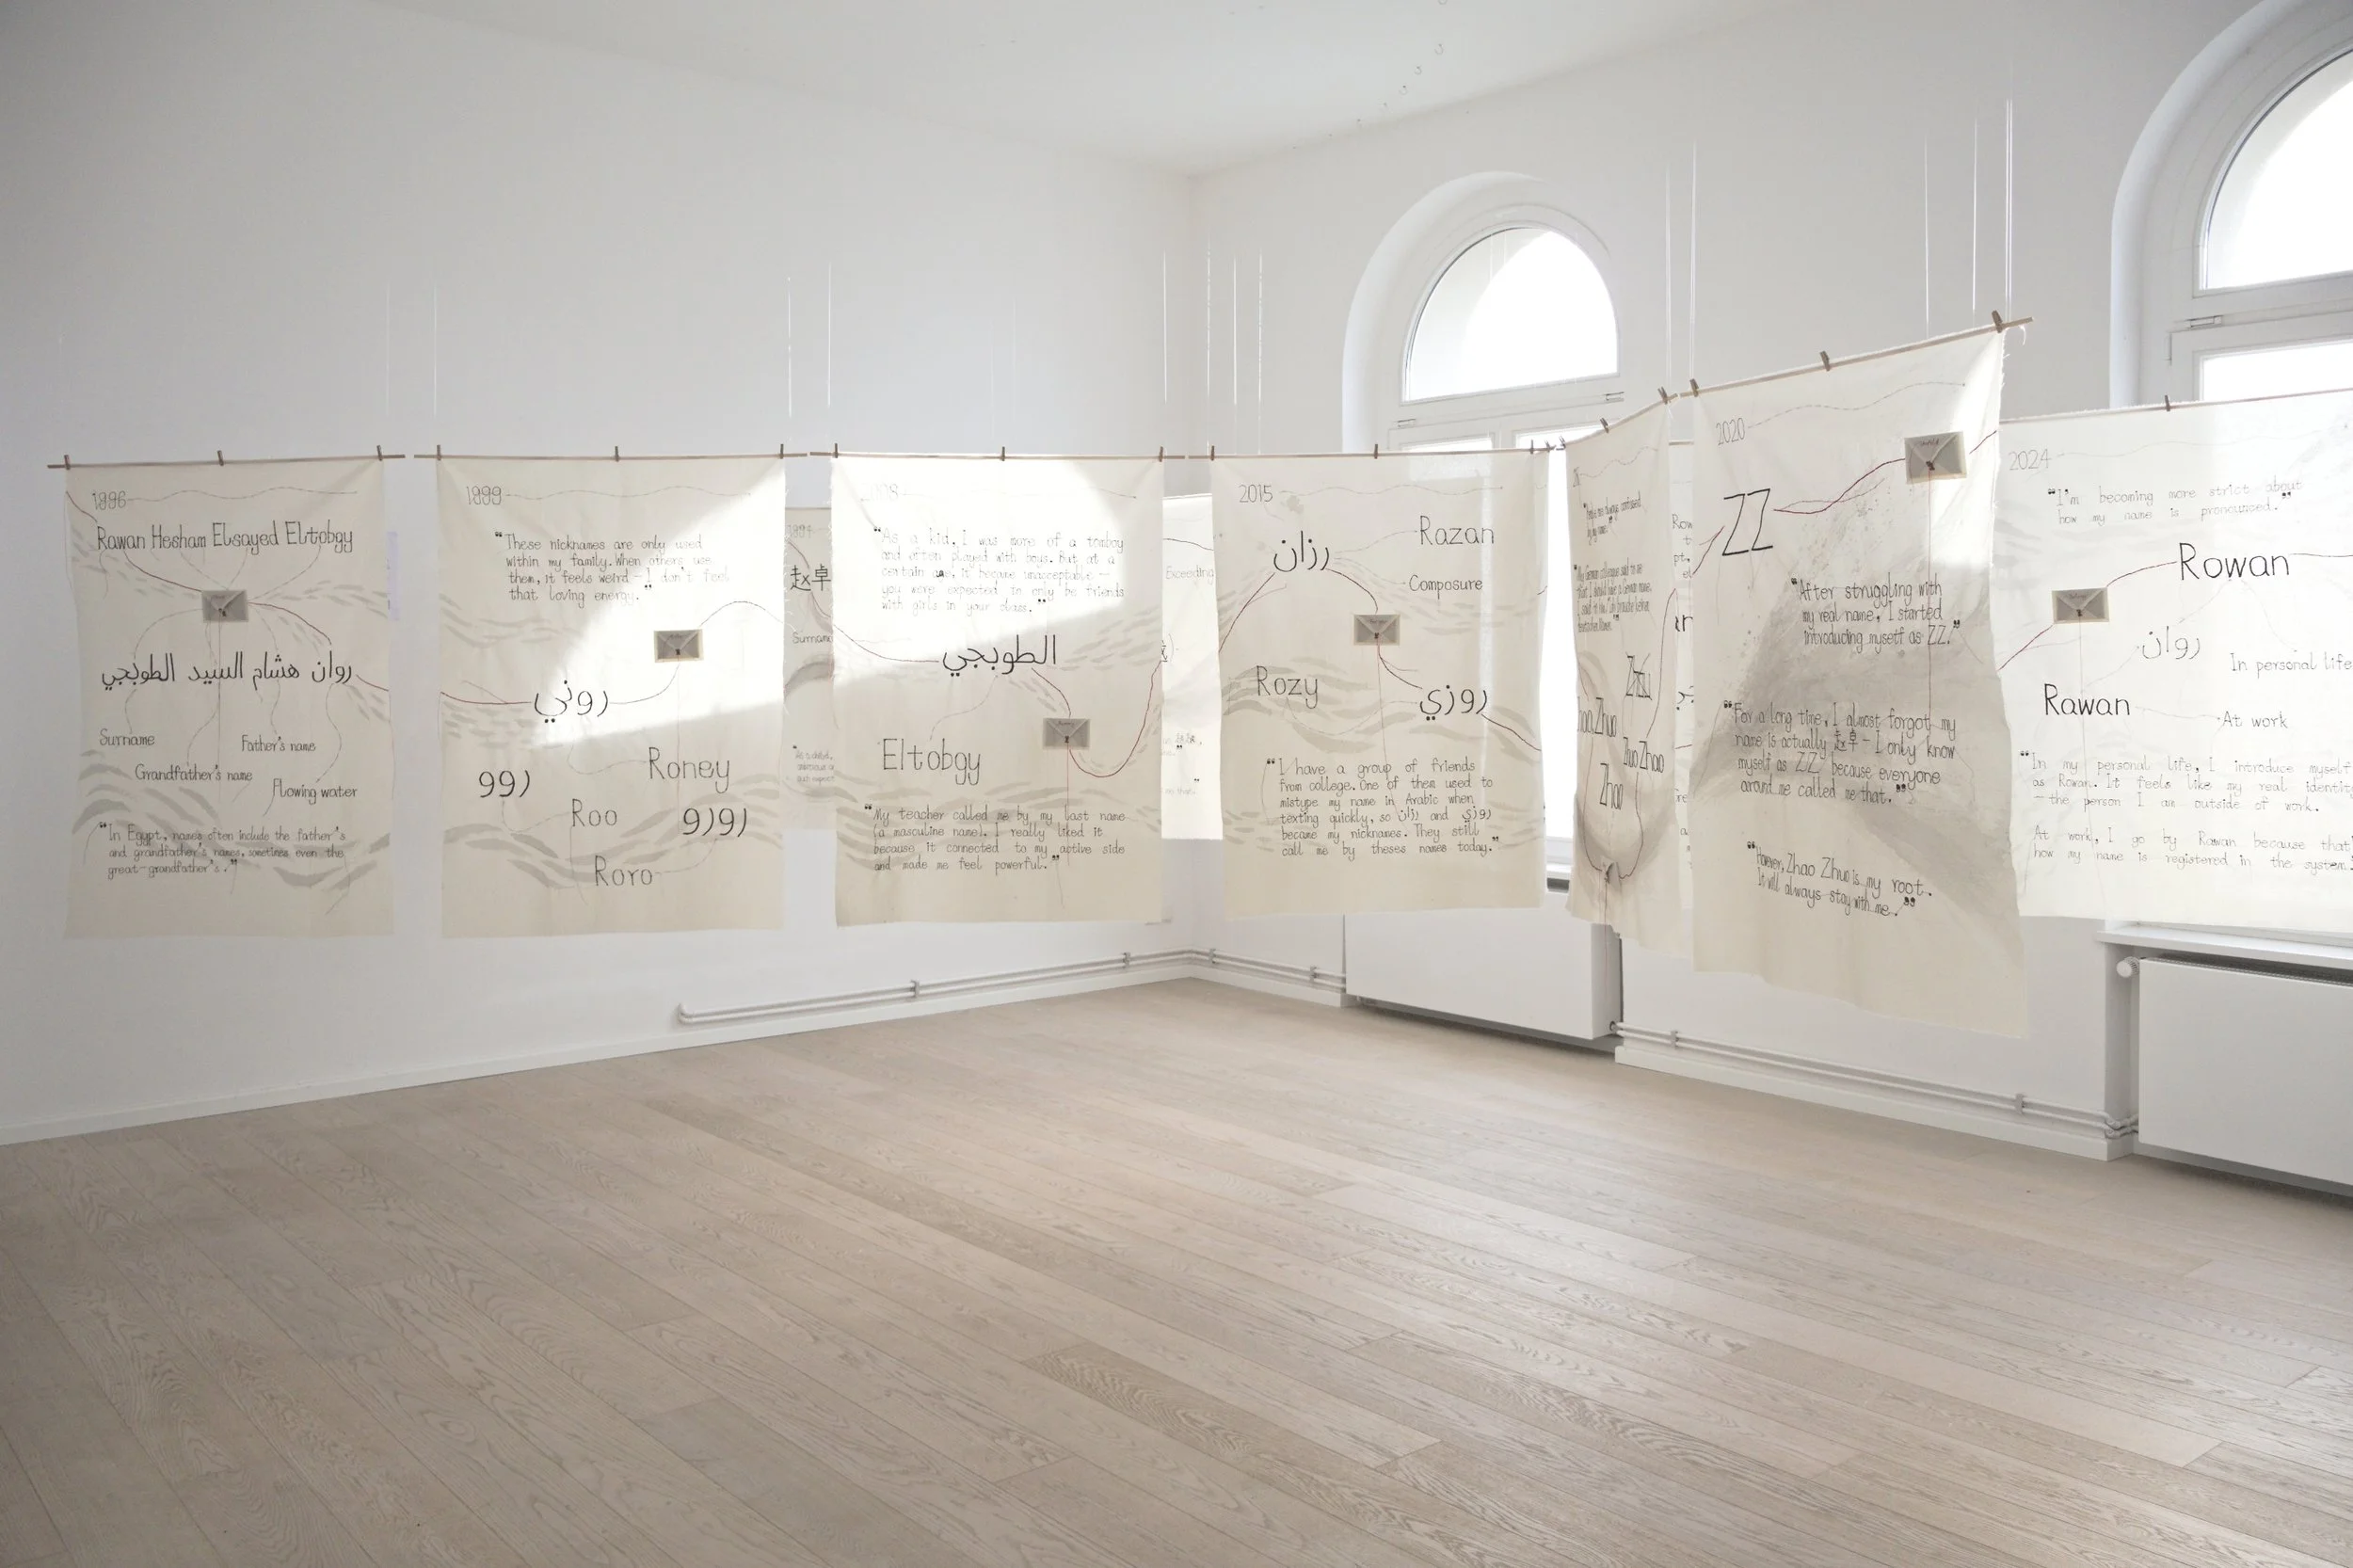 1996
Rawan Hesham Elsayed Eltobgy
روان هشام السيد الطوبجي
Surname
Father's name
Grandfather's name
Flowing water
"In Egypt, names often include the father's
and grandfather's names, sometimes even the
great-grandfather's."
1999
"These nicknames are only used
within my family. When others use
them, it feels weird – I don't feel
that loving energy."
روني
Roney
روو
Roo
رورو
Roro
赵卓
Surname
"As a kid, I was more of a tomboy
and often played with boys. But at a
certain age, it became unacceptable –
you were expected to only be friends
with girls in your class."
الطوبجي
Eltobgy
"My teacher called me by my last name
(a masculine name). I really liked it
because it connected to my active side
and made me feel powerful."
Exceeding
2015
رزان
Razan
Composure
Rozy
روزي
"I have a group of friends
from college. One of them used to
mistype my name in Arabic when
texting quickly, so رزان and روزي
became my nicknames. They still
call me by theses names today."
Zhuo Zhao
Zhao
2020
ZZ
"After struggling with
my real name, I started
introducing myself as ZZ."
"For a long time, I almost forgot my
name is actually 赵卓 – I only know
myself as ZZ because everyone
around me called me that."
"However, Zhao Zhuo is my root.
It will always stay with me."
2024
"I'm becoming more strict about
how my name is pronounced."
Rowan
روان
In personal life
Rawan
At work
"In my personal life, I introduce myself
as Rowan. It feels like my real identity
– the person I am outside of work.
At work, I go by Rawan because that'
how my name is registered in the system.